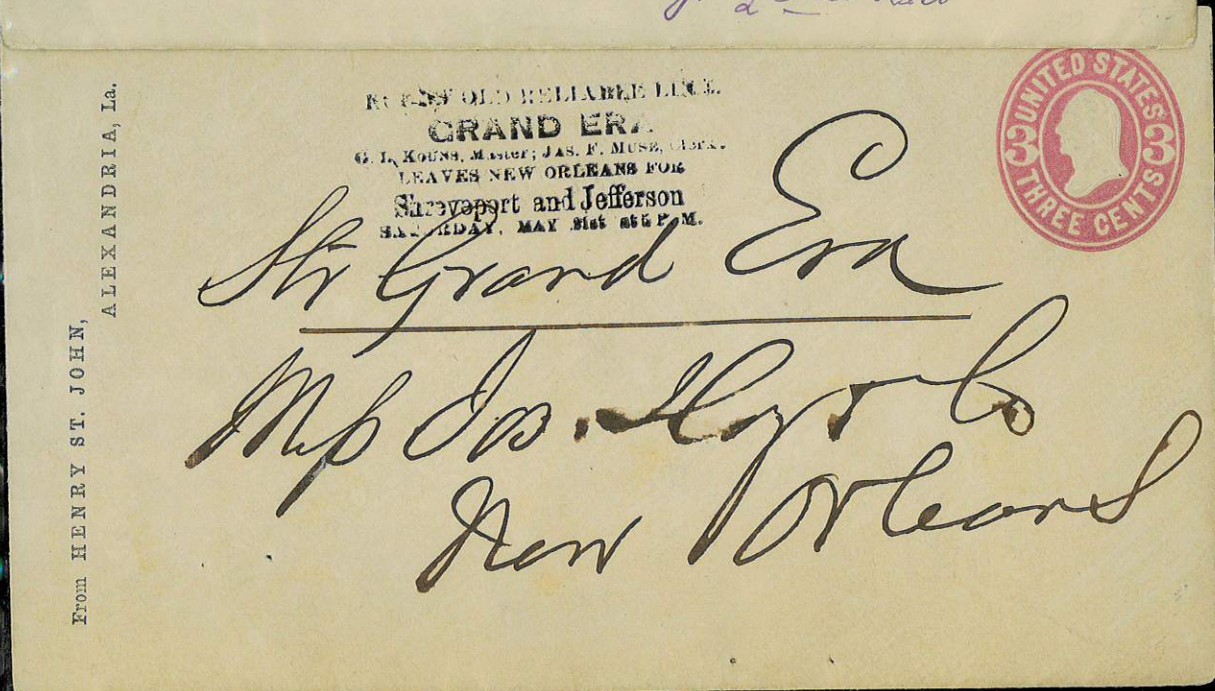 From HENRY ST. JOHN,
ALEXANDRIA, La.
OLD RELIABLE LINE.
GRAND ERA
G. L. KOUNS, Master; JAS. F. MUSE, Clerk.
LEAVES NEW ORLEANS FOR
Shreveport and Jefferson
SATURDAY, MAY 21st at 5 P. M.
UNITED STATES
3 3
THREE CENTS
Str Grand Era
Jas. Co
New Orleans